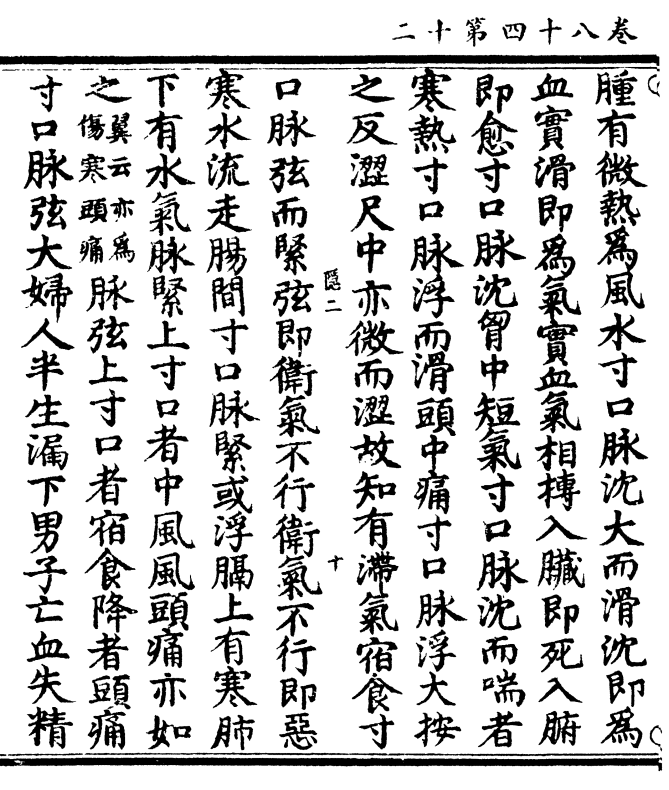 卷八十四第十二
腫有微熱為風水寸口脉沈大而滑沈即為
血實滑即為氣實血氣相摶入臟即死入腑
即愈寸口脉沈胷中短氣寸口脉沈而喘者
寒熱寸口脉浮而滑頭中痛寸口脉浮大按
之反澀尺中亦微而澀故知有滯氣宿食寸
隠二
十
口脉弦而緊弦即衛氣不行衛氣不行即惡
寒水流走腸間寸口脉緊或浮膈上有寒肺
下有水氣脉緊上寸口者中風風頭痛亦如
之翼云亦為傷寒頭痛脉弦上寸口者宿食降者頭痛
寸口脉弦大婦人半生漏下男子亡血失精